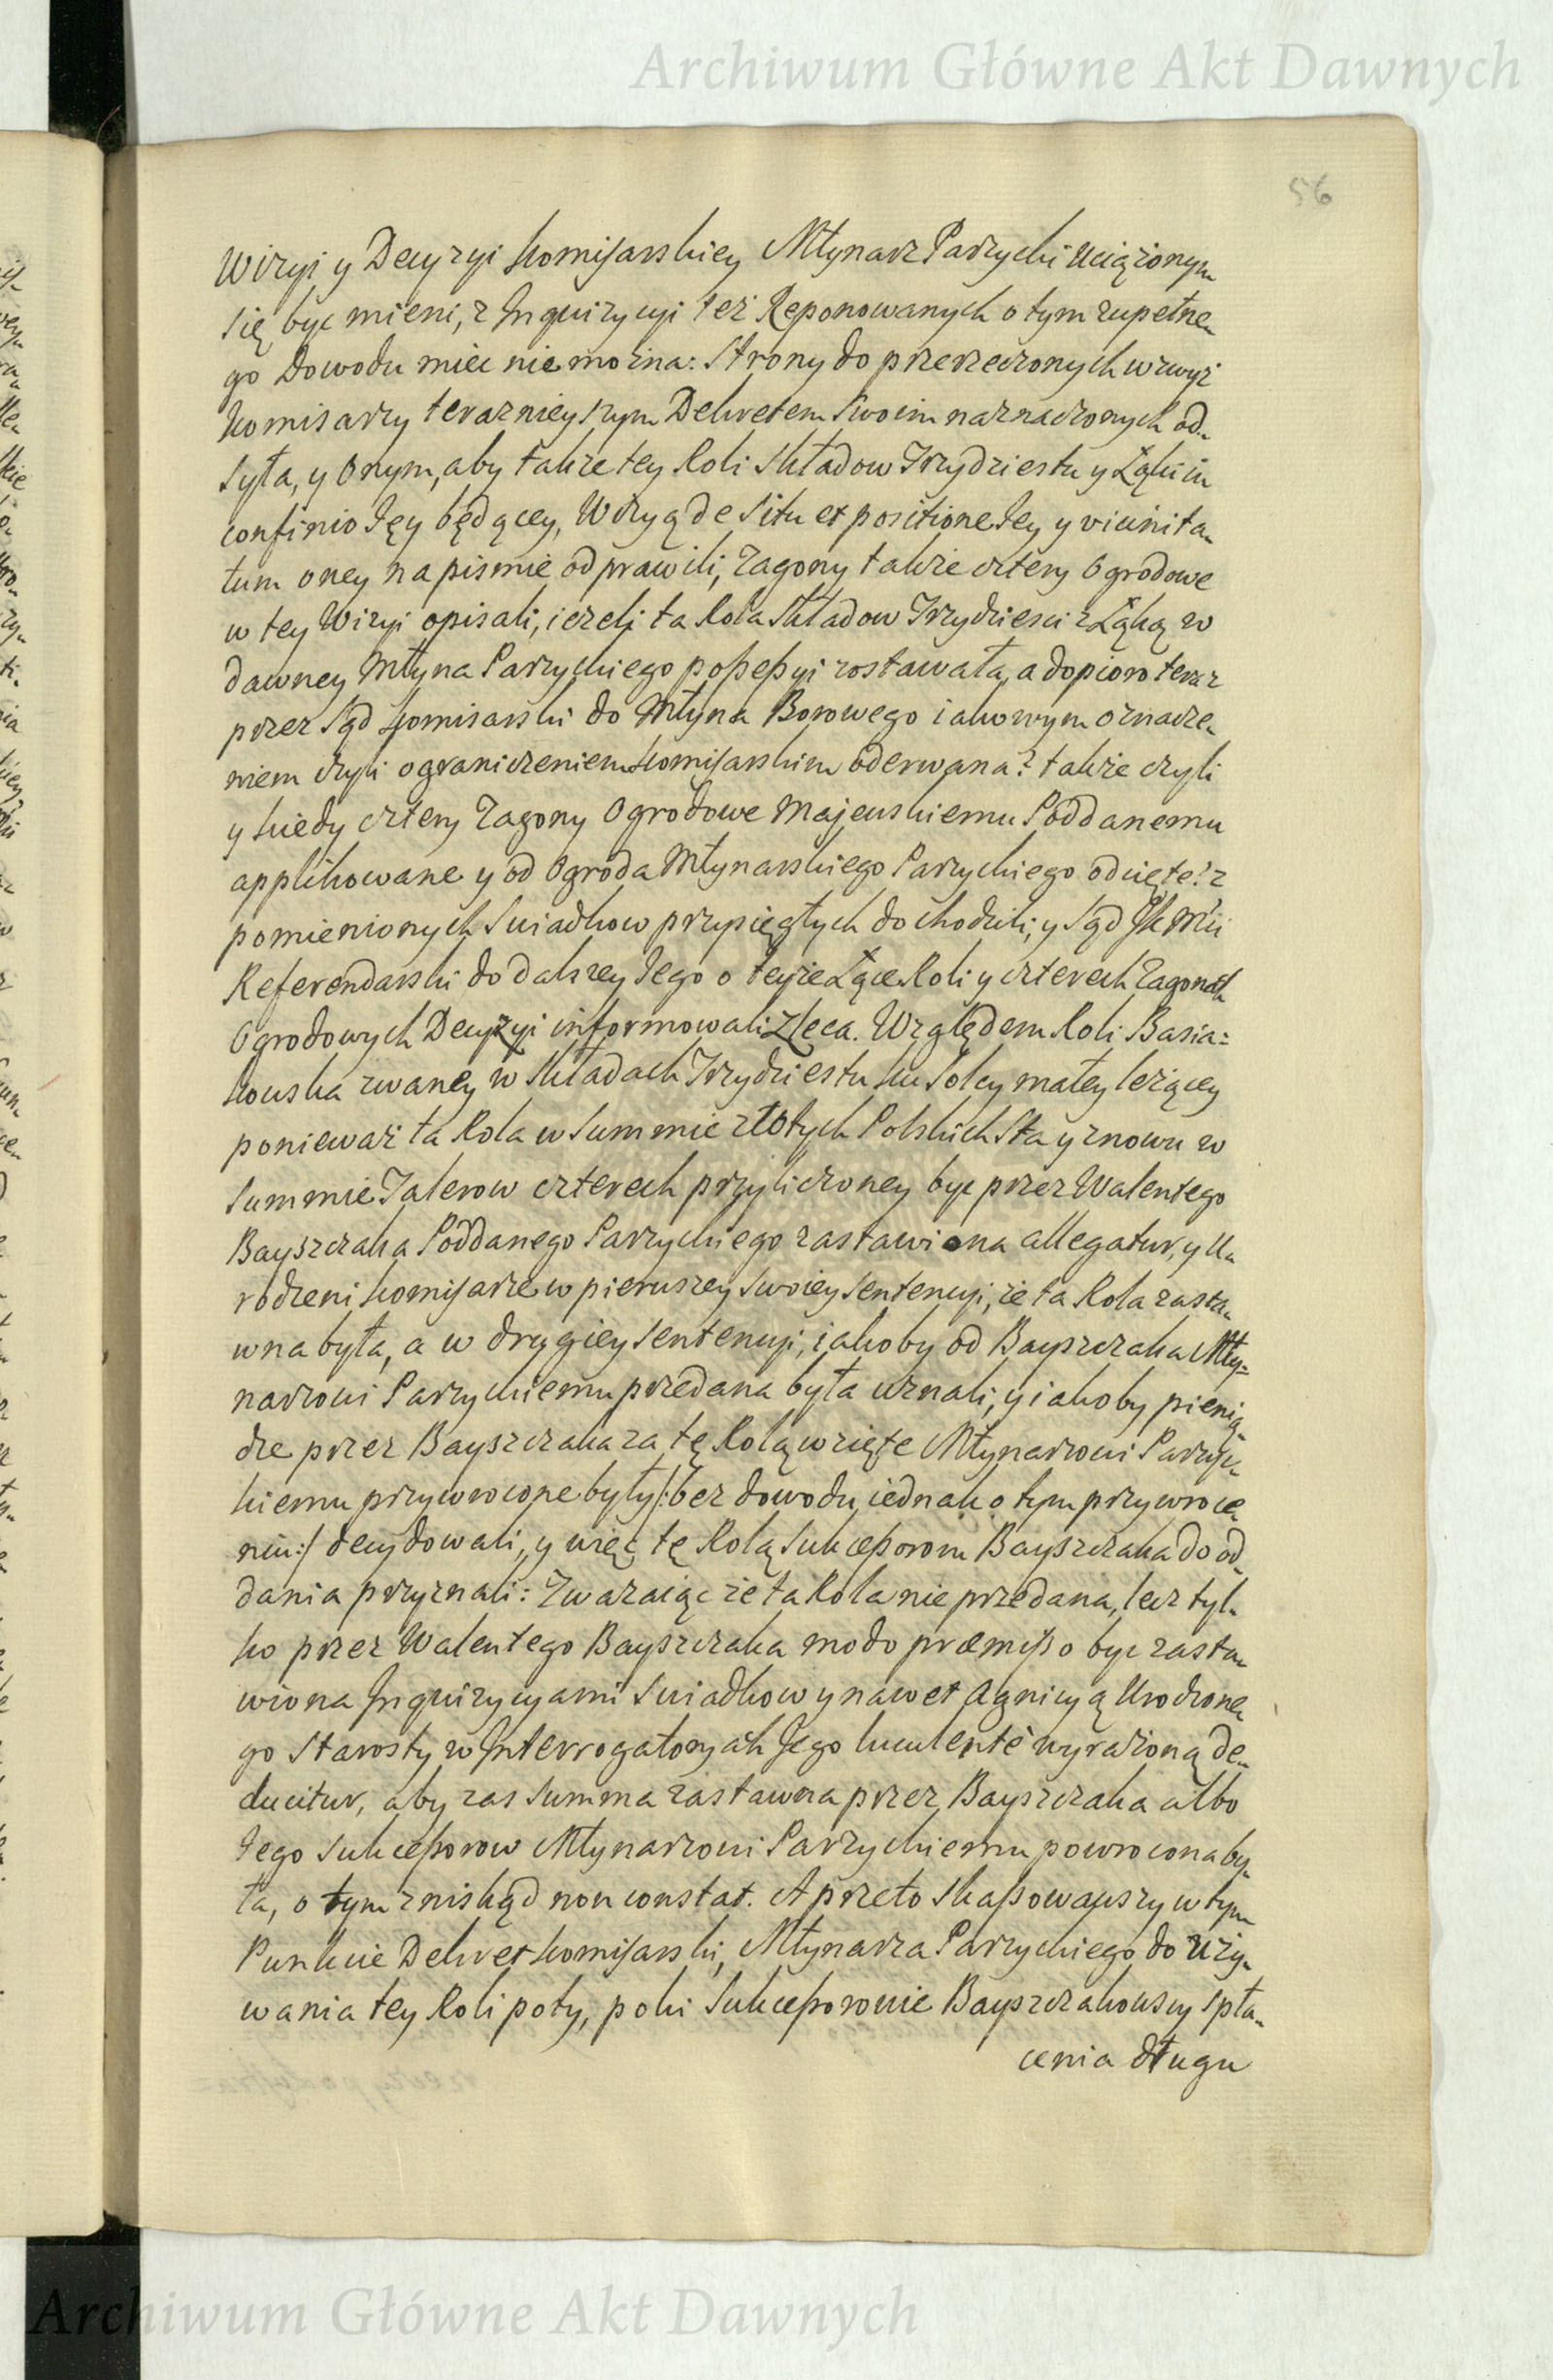 Archiwum Główne Akt Dawnych
56
Wizyi y Decyzyi Komisarskiey Młynarz Parzycki uciążonym
się byc mieni, z Inquizycyi też Reponowanych o tym zupełne-
go Dowodu miec nie można: Strony do przerzeczonych wzwyż
Komisarzy teraznieyszym Dekretem swoim naznaczonych od-
syła, y Onym, aby także tey Roli Składow Trzydziestu y Łąki in
confinio Jęy będącey, Wizyą de Situ et positione Jey y vicinita-
tum oney na pismie odprawili, Zagony także cztery Ogrodowe
w tey Wizyi opisali, ieżeli ta Rola Składow Trzydziesci z Łąką w
dawney Młyna Parzyckiego possessyi zostawała, a dopioro teraz
przez Sąd Komisarski do Młyna Borowego iakowym oznacze-
niem czyli ograniczeniem Komisarskim oderwana? także czyli
y kiedy cztery Zagony Ogrodowe Majewskiemu Poddanemu
applikowane y od Ogroda Młynarskiego Parzyckiego odcięte? z
pomienionych Swiadkow przysięgłych dochodzili, y Sąd JK Mci
Referendarski do dalszey Jego o teyże Łące Roli y czterech Zagonach
Ogrodowych Decyzyi informowali Zleca. Względem Roli Basia=
kowska zwaney w Składach Trzydziestu ku Solcy małey leżącey
ponieważ ta Rola w Summie złotych Polskich Sta y znowu w
Summie Talerow czterech przyliczoney byc przez Walentego
Bayszczaka Poddanego Parzyckiego zastawiona allegatur, y U-
rodzeni Komisarze w pierwszey swoiey Sentencyi, że ta Rola zasta-
wna była, a w drugiey Sentencyi, iakoby od Bayszczaka Mły=
narzowi Parzyckiemu przedana była uznali, y iakoby pienią-
dze przez Bayszczaka za tę Rolą wzięte Młynarzowi Parzyc-
kiemu przywrocone były /: bez dowodu iednak o tym przywroce-
niu :/ decydowali, y więc tę Rolą Sukcessorom Bayszczaka do od-
dania przyznali: Zważaiąc że ta Rola nie przedana, lecz tyl-
ko przez Walentego Bayszczaka modo præmisso byc zasta-
wiona Inquizycyami Swiadkow y nawet Agnicyą Urodzone-
go Starosty w Interrogatoryach Jego luculentè wyrażoną de-
ducitur, aby zas Summa zastawna przez Bayszczaka albo
Jego Sukcessorow Młynarzowi Parzyckiemu powrocona by-
ła, o tym zniskąd non constat. A przeto Skassowawszy w tym
Punkcie Dekret Komisarski, Młynarza Parzyckiego do uży-
wania tey Roli poty, poki Sukcessorowie Bayszczakowscy spła-
cenia długu
Archiwum Główne Akt Dawnych